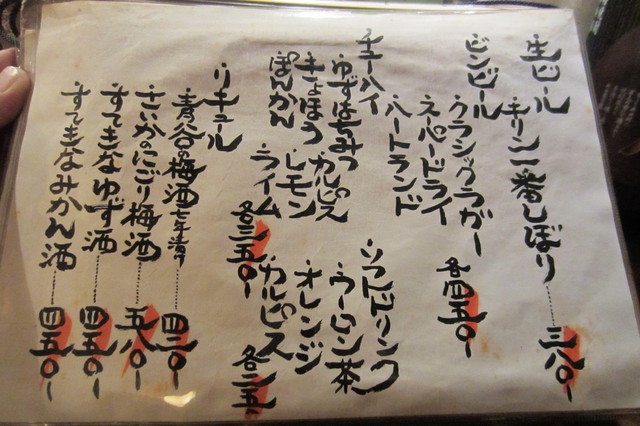 生ビール
キリン一番しぼり……三八〇ー
ビンビール
クラシックラガー
スーパードライ
ハートランド
各四五〇ー
チューハイ
ゆずはちみつ カルピス
きょほう レモン
ぽんかん ライム
各三五〇ー
ソフトドリンク
ウーロン茶
オレンジ
カルピス
各二五〇ー
リキュール
青谷の梅酒……四二〇ー
さいかのにごり梅酒……五八〇ー
すてきなゆず酒……四五〇ー
すてきなみかん酒……四五〇ー